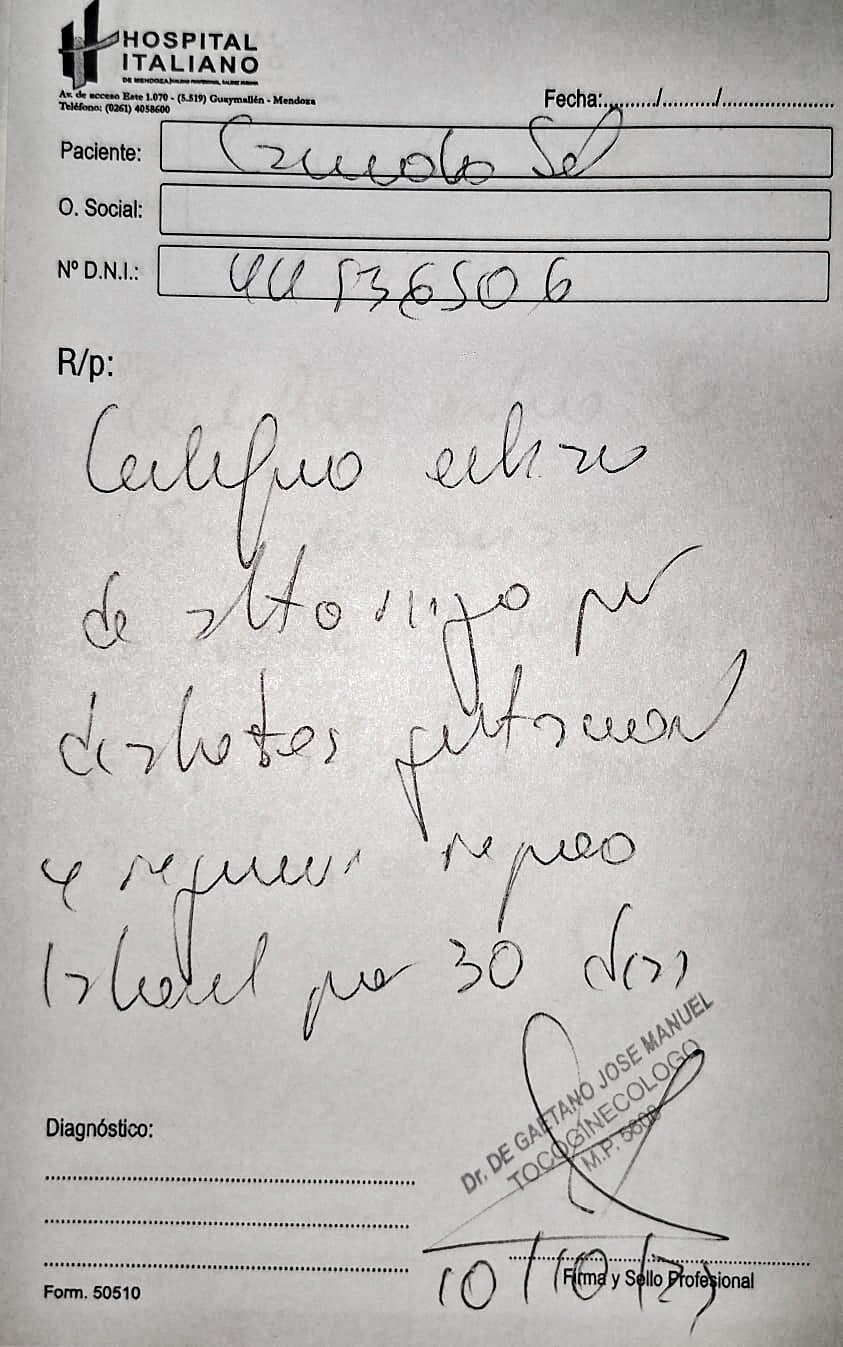 HOSPITAL
ITALIANO
DE MENDOZA
Av. de acceso Este 1.070 - (5.519) Guaymallén - Mendoza
Teléfono: (0261) 4058600
Fecha:........./........./.....................
Paciente: Sol
O. Social:
Nº D.N.I.: 44536506
R/p:
Certifico
de alto riesgo por
diabetes gestacional
y requiere reposo
laboral por 30 dias
Dr. DE GAETANO JOSE MANUEL
TOCOGINECOLOGO
M.P.
Diagnóstico:
10/10/25
Firma y Sello Profesional
Form. 50510